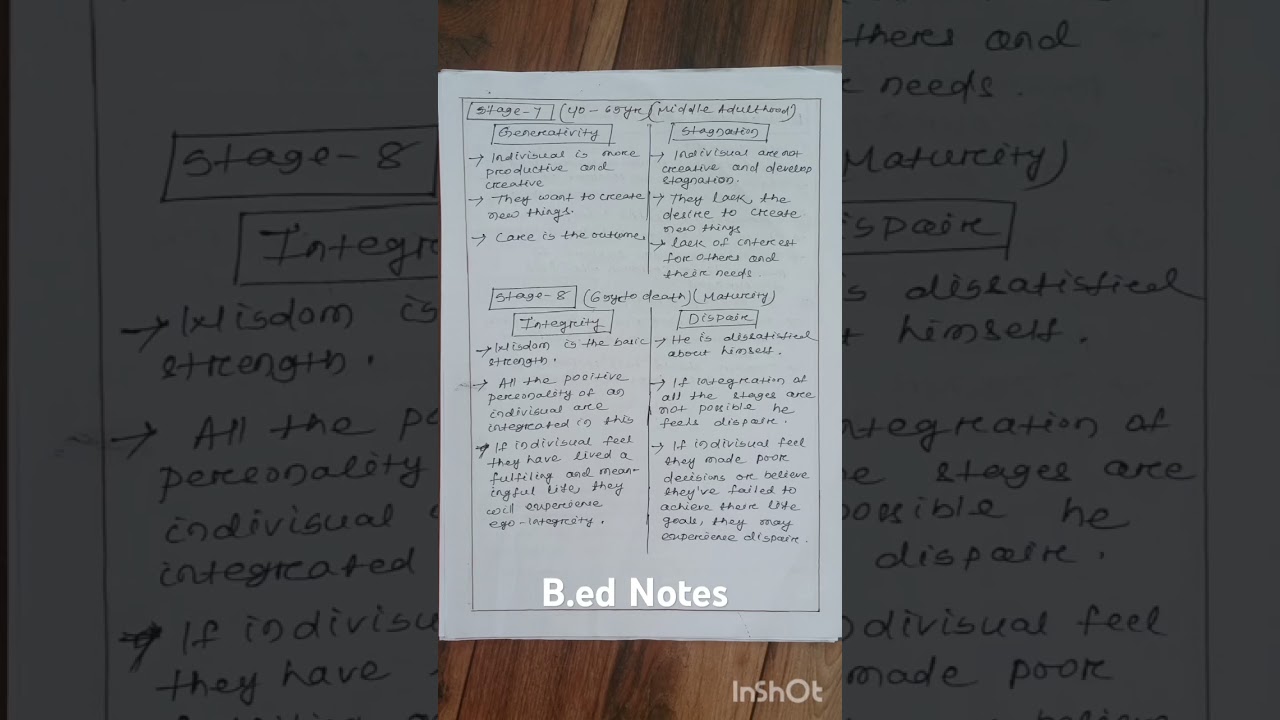 Stage-7 (40-65yr) (Middle Adulthood)
Genereativity
→ Indivisual is more
productive and
creative
→ They want to create
new things.
→ Care is the outcome,
Stagnation
→ Indivisual are not
creative and develop
stagnation.
→ They lack, the
desire to create
new things
→ lack of interest
for others and
their needs.
Stage-8 (65yr to death) (Maturity)
Integrity
→ Wisdom is the basic
strength.
→ All the positive
personality of an
indivisual are
integrated in this
→ If indivisual feel
they have lived a
fulfiling and mean-
ingful life, they
will experience
ego-integrity.
Dispaire
→ He is dissatisfied
about himself.
→ If integration of
all the stages are
not possible he
feels dispaire.
→ If indivisual feel
they made poor
decisions or believe
they've failed to
achieve their life
goals, they may
experience dispaire.
B.ed Notes
InShOt